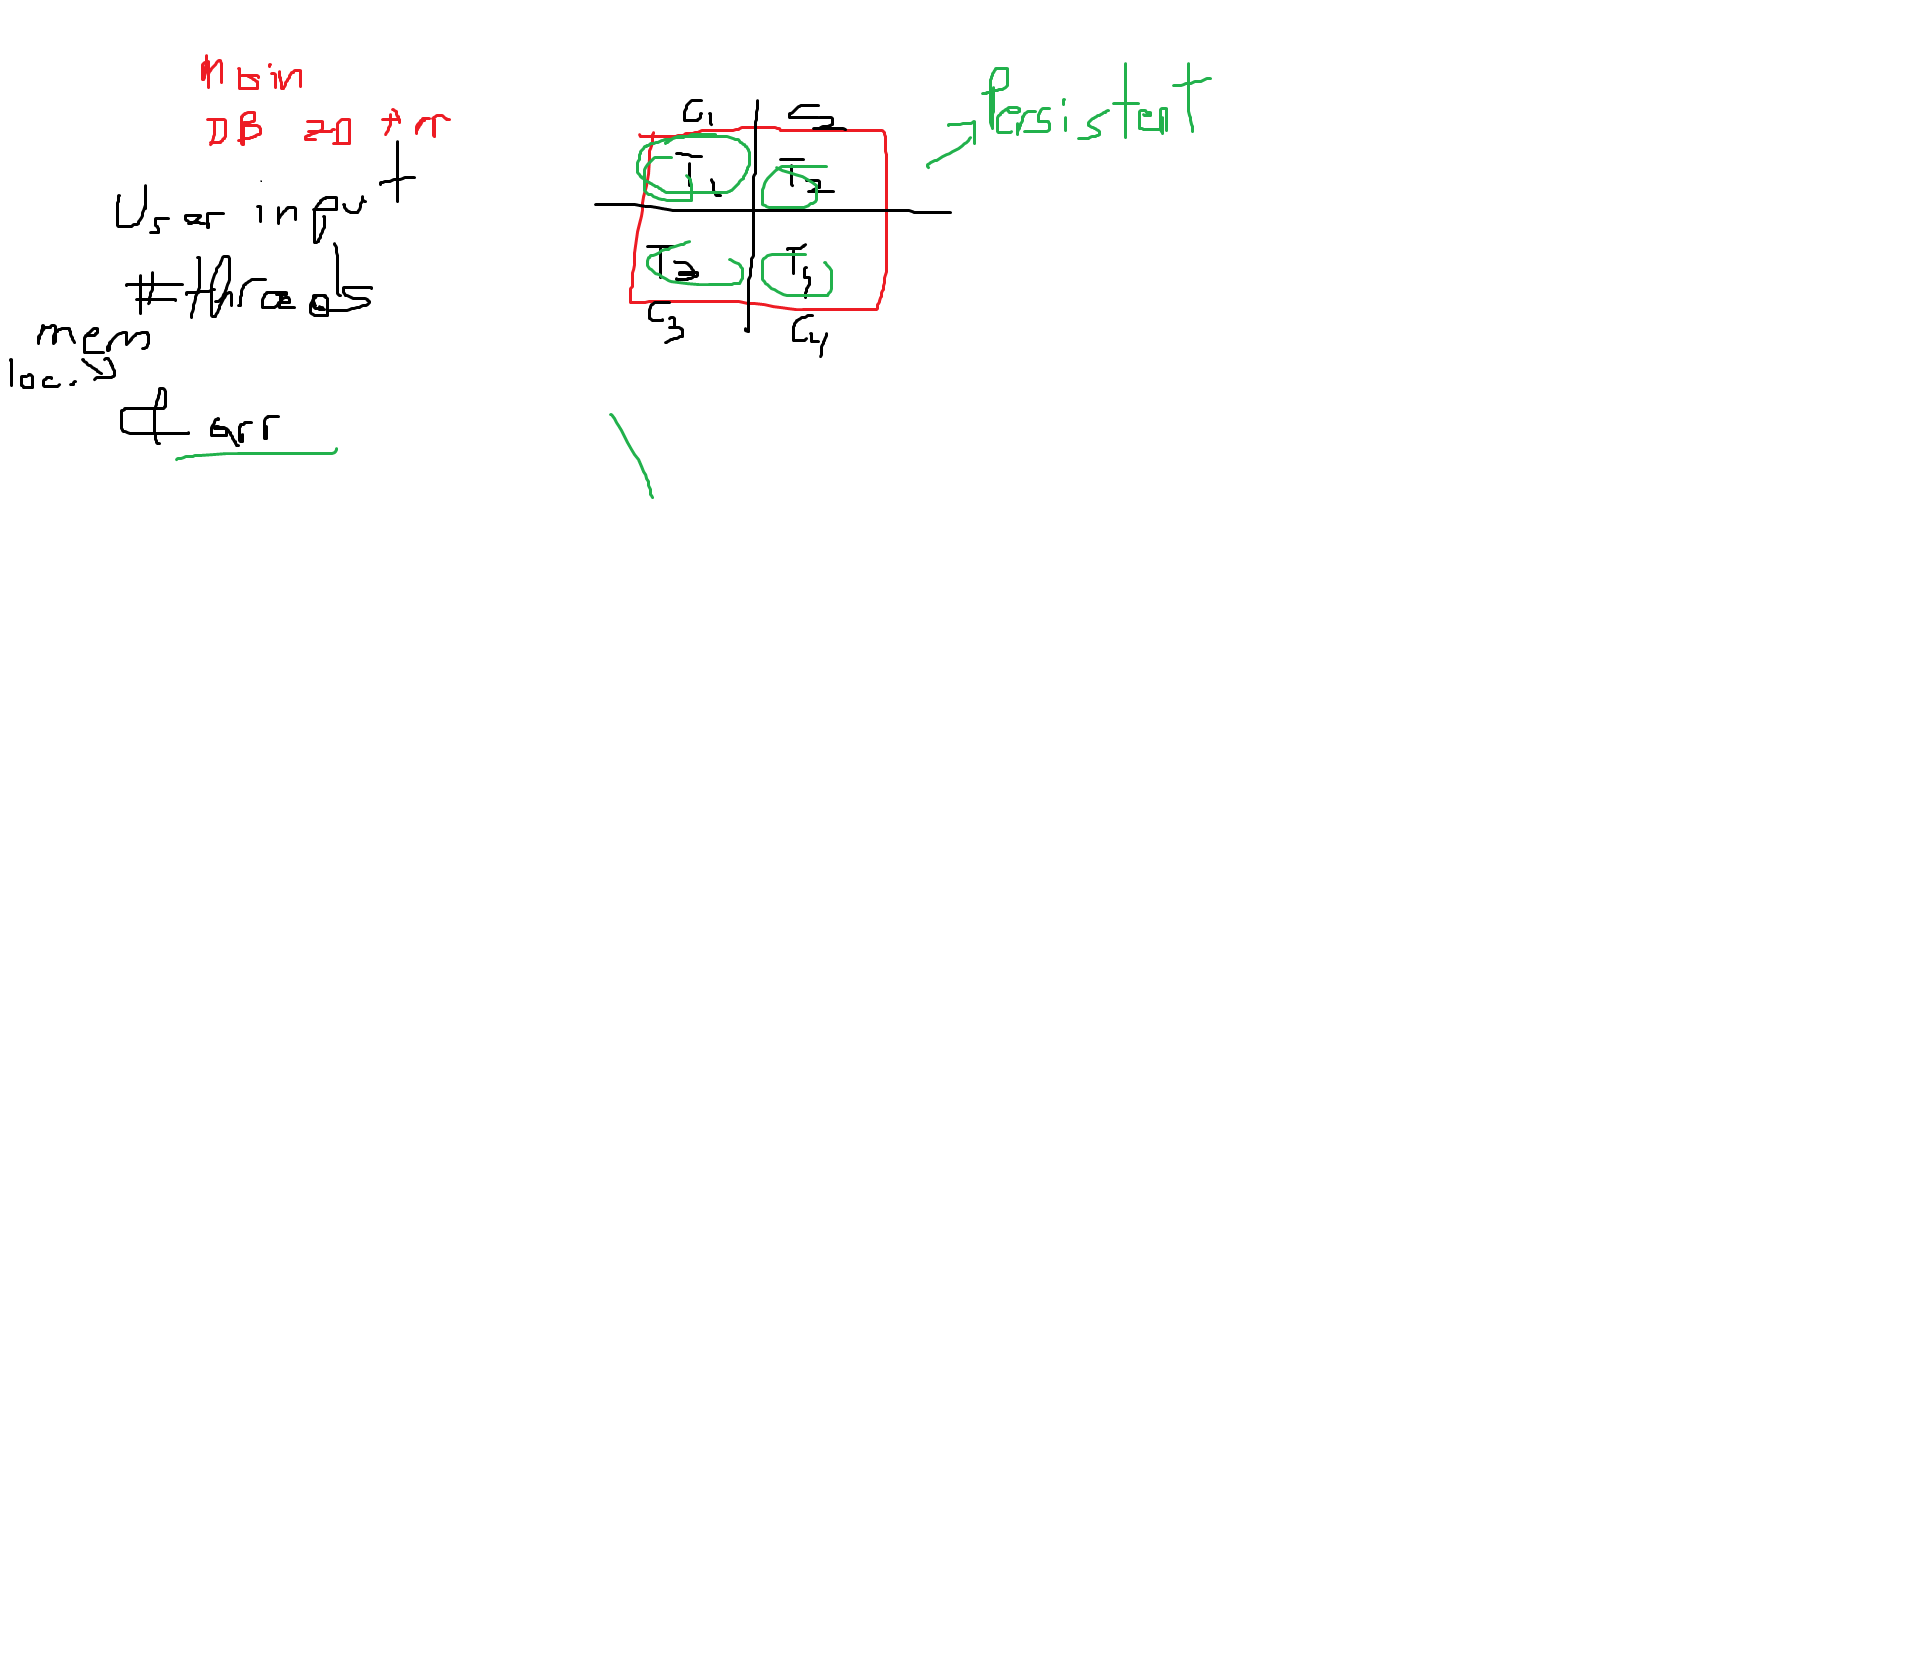 Main
DB 2D Arr
User input
#threads
mem
loc.
& arr
C1 C2
T1 T2
T3 T4
C3 C4
Persistent